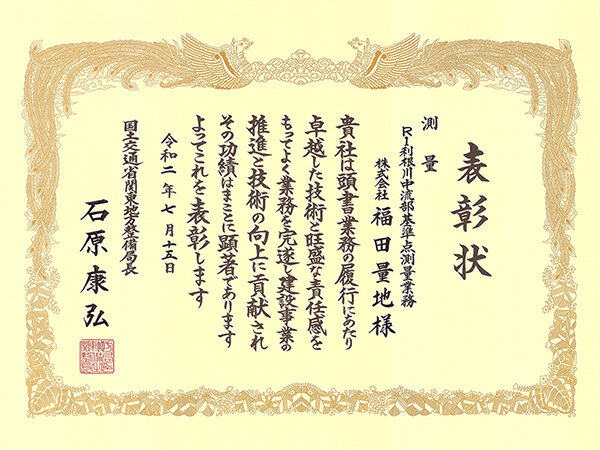 表彰状
測量
R1利根川中流部基準点測量業務
株式会社 福田量地様
貴社は頭書業務の履行にあたり
卓越した技術と旺盛な責任感を
もってよく業務を完遂し建設事業の
推進と技術の向上に貢献され
その功績はまことに顕著であります
よってこれを表彰します
令和二年七月十五日
国土交通省関東地方整備局長
石原康弘